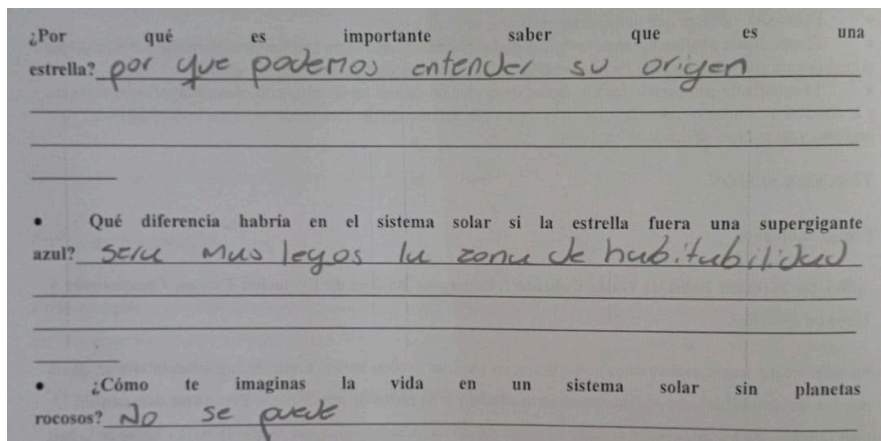 ¿Por qué es importante saber que es una
estrella? por que podemos entender su origen
• Qué diferencia habría en el sistema solar si la estrella fuera una supergigante
azul? seria mas legos la zona de habitabilidad
• ¿Cómo te imaginas la vida en un sistema solar sin planetas
rocosos? No se puede